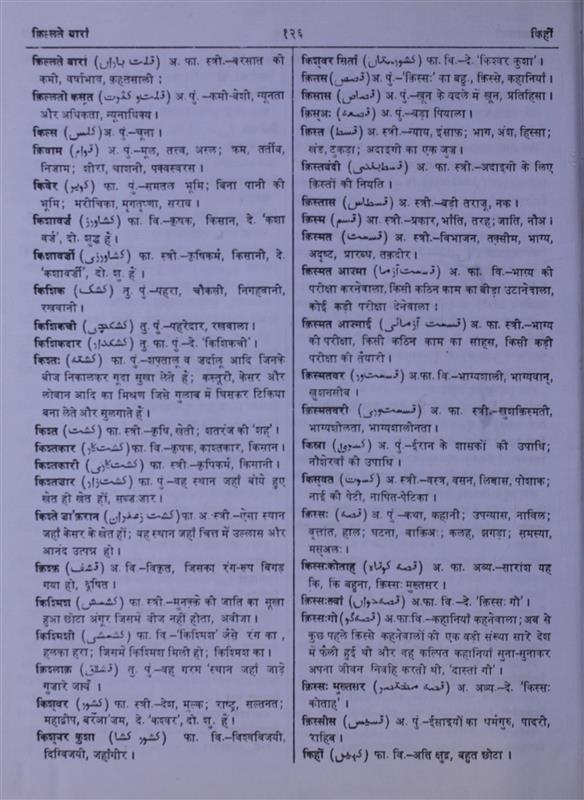 क़िल्लते बारां
१२६
क़िहीं
क़िल्लते बारां (قلت باراں) अ. फा. स्त्री.–बरसात की
कमी, वर्षाभाव, क़हतसाली ;
क़िल्लतो कस्रत (قلت و کثرت) अ. पुं.–कमी-बेशी, न्यूनता
और अधिकता, न्यूनाधिक्य ।
किल्स (کلس) अ. पुं.–चूना ।
क़िवाम (قوام) अ. पुं.–मूल, तत्त्व, अस्ल; क्रम, तर्तीब,
निजाम; शीरा, चाशनी, पक्वस्वरस ।
किवेर (کویر) फा. पुं.–समतल भूमि; बिना पानी की
भूमि; मरीचिका, मृगतृष्णा, सराब ।
किशावर्ज़ (کشاورز) फा. वि.–कृषक, किसान, दे. 'कशा
वर्ज़', दो. शुद्ध हैं ।
किशावर्ज़ी (کشاورزی) फा. स्त्री.–कृषिकर्म, किसानी, दे.
'कशावर्ज़ी', दो. शु. हैं ।
किशिक (کشک) तु. पुं.–पहरा, चौकसी, निगहबानी,
रखवानी ।
किशिकची (کشکچی) तु. पुं.–पहरेदार, रखवाला ।
किशिकदार (کشکدار) तु. फा. पुं.–दे. 'किशिकची' ।
किश्तः (کشتہ) फा. पुं.–शफ़्तालू व जर्दालू आदि जिनके
बीज निकालकर गूदा सुखा लेते हैं; कस्तूरी, केसर और
लोबान आदि का मिश्रण जिसे गुलाब में घिसकर टिकिया
बना लेते और सुलगाते हैं ।
किश्त (کشت) फा. स्त्री.–कृषि, खेती; शतरंज की 'शह' ।
किश्तकार (کشت کار) फा. वि.–कृषक, काश्तकार, किसान ।
किश्तकारी (کشت کاری) फा. स्त्री.–कृषिकर्म, किसानी ।
किश्तज़ार (کشت زار) फा. पुं–वह स्थान जहाँ बोये हुए
खेत ही खेत हों, सब्ज़:ज़ार ।
किश्ते ज़ा'फ़रान (کشت زعفران) फा. अ. स्त्री.–ऐसा स्थान
जहाँ केसर के खेत हों; वह स्थान जहाँ चित्त में उल्लास और
आनंद उत्पन्न हो ।
क़िश्फ़ (قشف) अ. वि.–विकृत, जिसका रंग-रूप बिगड़
गया हो, दूषित ।
किश्मिश (کشمش) फा. स्त्री.–मुनक्क़े की जाति का सूखा
हुआ छोटा अंगूर जिसमें बीज नहीं होता, अबीजा ।
किश्मिशी (کشمشی) फा. वि–'किश्मिश' जैसे रंग का,
हलका हरा; जिसमें किश्मिश मिली हो; किश्मिश का ।
क़िश्लाक़ (قشلاق) तु. पुं.–वह गरम स्थान जहाँ जाड़े
गुज़ारे जायँ ।
किश्वर (کشور) फा. स्त्री.–देश, मुल्क; राष्ट्र, सल्तनत;
महाद्वीप, बर्रेआ'ज़म, दे. 'कश्वर', दो. शु. हैं ।
किश्वर कुशा (کشور کشا) फा. वि.–विश्वविजयी,
दिग्विजयी, जहाँगीर ।
किश्वर सितां (کشور ستاں) फा. वि.–दे. 'किश्वर कुशा' ।
क़िसस (قصص) अ. पुं.–'क़िस्सः' का बहु., क़िस्से, कहानियाँ ।
क़िसास (قصاص) अ. पुं.–खून के बदले में खून, प्रतिहिंसा ।
क़िस्अः (قصعہ) अ. पुं.–बड़ा पियाला ।
क़िस्त (قسط) अ. स्त्री.–न्याय, इंसाफ़; भाग, अंश, हिस्सा;
खंड, टुकड़ा; अदाइगी का एक जुज़ ।
क़िस्तबंदी (قسط بندی) अ. फा. स्त्री.–अदाइगी के लिए
क़िस्तों की नियति ।
क़िस्तास (قسطاس) अ. स्त्री.–बड़ी तराजू, नक ।
क़िस्म (قسم) अ. स्त्री.–प्रकार, भाँति, तरह; जाति, नौअ ।
क़िस्मत (قسمت) अ. स्त्री.–विभाजन, तक़्सीम, भाग्य,
अदृष्ट, प्रारब्ध, तक़दीर ।
क़िस्मत आज़्मा (قسمت آزما) अ. फा. वि–भाग्य की
परीक्षा करनेवाला, किसी कठिन काम का बीड़ा उठानेवाला,
कोई कड़ी परीक्षा देनेवाला ।
क़िस्मत आज़्माई (قسمت آزمائی) अ. फा. स्त्री.–भाग्य
की परीक्षा, किसी कठिन काम का साहस, किसी कड़ी
परीक्षा की तैयारी ।
क़िस्मतवर (قسمت ور) अ. फा. वि.–भाग्यशाली, भाग्यवान्,
खुशनसीब ।
क़िस्मतवरी (قسمت وری) अ. फा. स्त्री.–खुशक़िस्मती,
भाग्यशीलता, भाग्यशालीनता ।
किस्रा (کسریٰ) अ. पुं.–ईरान के शासकों की उपाधि;
नौशेरवाँ की उपाधि ।
किस्वत (کسوت) अ. स्त्री.–वस्त्र, वसन, लिबास, पोशाक;
नाई की पेटी, नापित-पेटिका ।
क़िस्सः (قصہ) अ. पुं–कथा, कहानी; उपन्यास, नाविल;
वृत्तांत, हाल, घटना, वाक़िअः; कलह, झगड़ा; समस्या,
मस्अलः ।
क़िस्सःकोताह (قصہ کوتاہ) अ. फा. अव्य.–सारांश यह
कि, कि बहुना, क़िस्सः मुख़्तसर ।
क़िस्सःख़्वां (قصہ خواں) अ. फा. वि.–दे. 'क़िस्सः गो' ।
क़िस्सःगो (قصہ گو) अ. फा. वि.–कहानियाँ कहनेवाला; अब से
कुछ पहले क़िस्से कहनेवालों की एक बड़ी संख्या सारे देश
में फैली हुई थी और वह कल्पित कहानियाँ सुना-सुनाकर
अपना जीवन निर्वाह करती थी, 'दास्तां गो' ।
क़िस्सः मुख़्तसर (قصہ مختصر) अ. अव्य.–दे. 'क़िस्सः
कोताह' ।
क़िस्सीस (قسیس) अ. पुं.–ईसाइयों का धर्मगुरु, पादरी,
राहिब ।
किहीं (کہیں) फा. वि.–अति क्षुद्र, बहुत छोटा ।